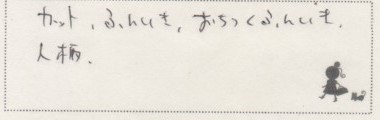 カット、ふんいき、おちつくふんいき、
人柄、